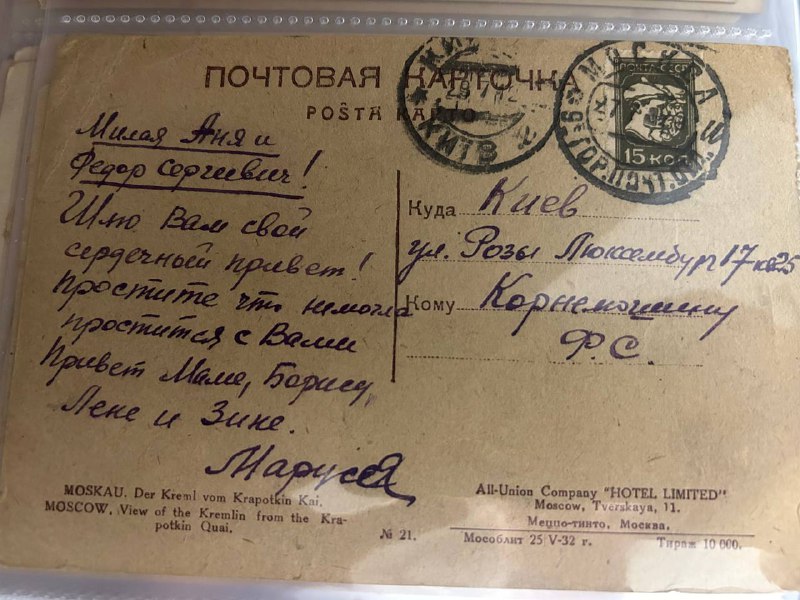 ПОЧТОВАЯ КАРТОЧКА
POŜTA KARTO
МОСКВА
КИТВ
ПОЧТА СССР
15 КОП
Милая Аня и
Федор Сергиевич!
Шлю Вам свой
сердечный привет!
Простите что немогла
простится с Вами
Привет Маме, Борису
Лене и Зине.
Маруся
Куда Киев
ул. Розы Люксембург 17 кв 25
Кому
Ф.С.
MOSKAU. Der Kreml vom Krapotkin Kai.
MOSCOW. View of the Kremlin from the Kra-
potkin Quai.
№ 21.
All-Union Company "HOTEL LIMITED"
Moscow, Tverskaya, 11.
Меццо-тинто, Москва.
Мособлит 25 V-32 г. Тираж 10 000.